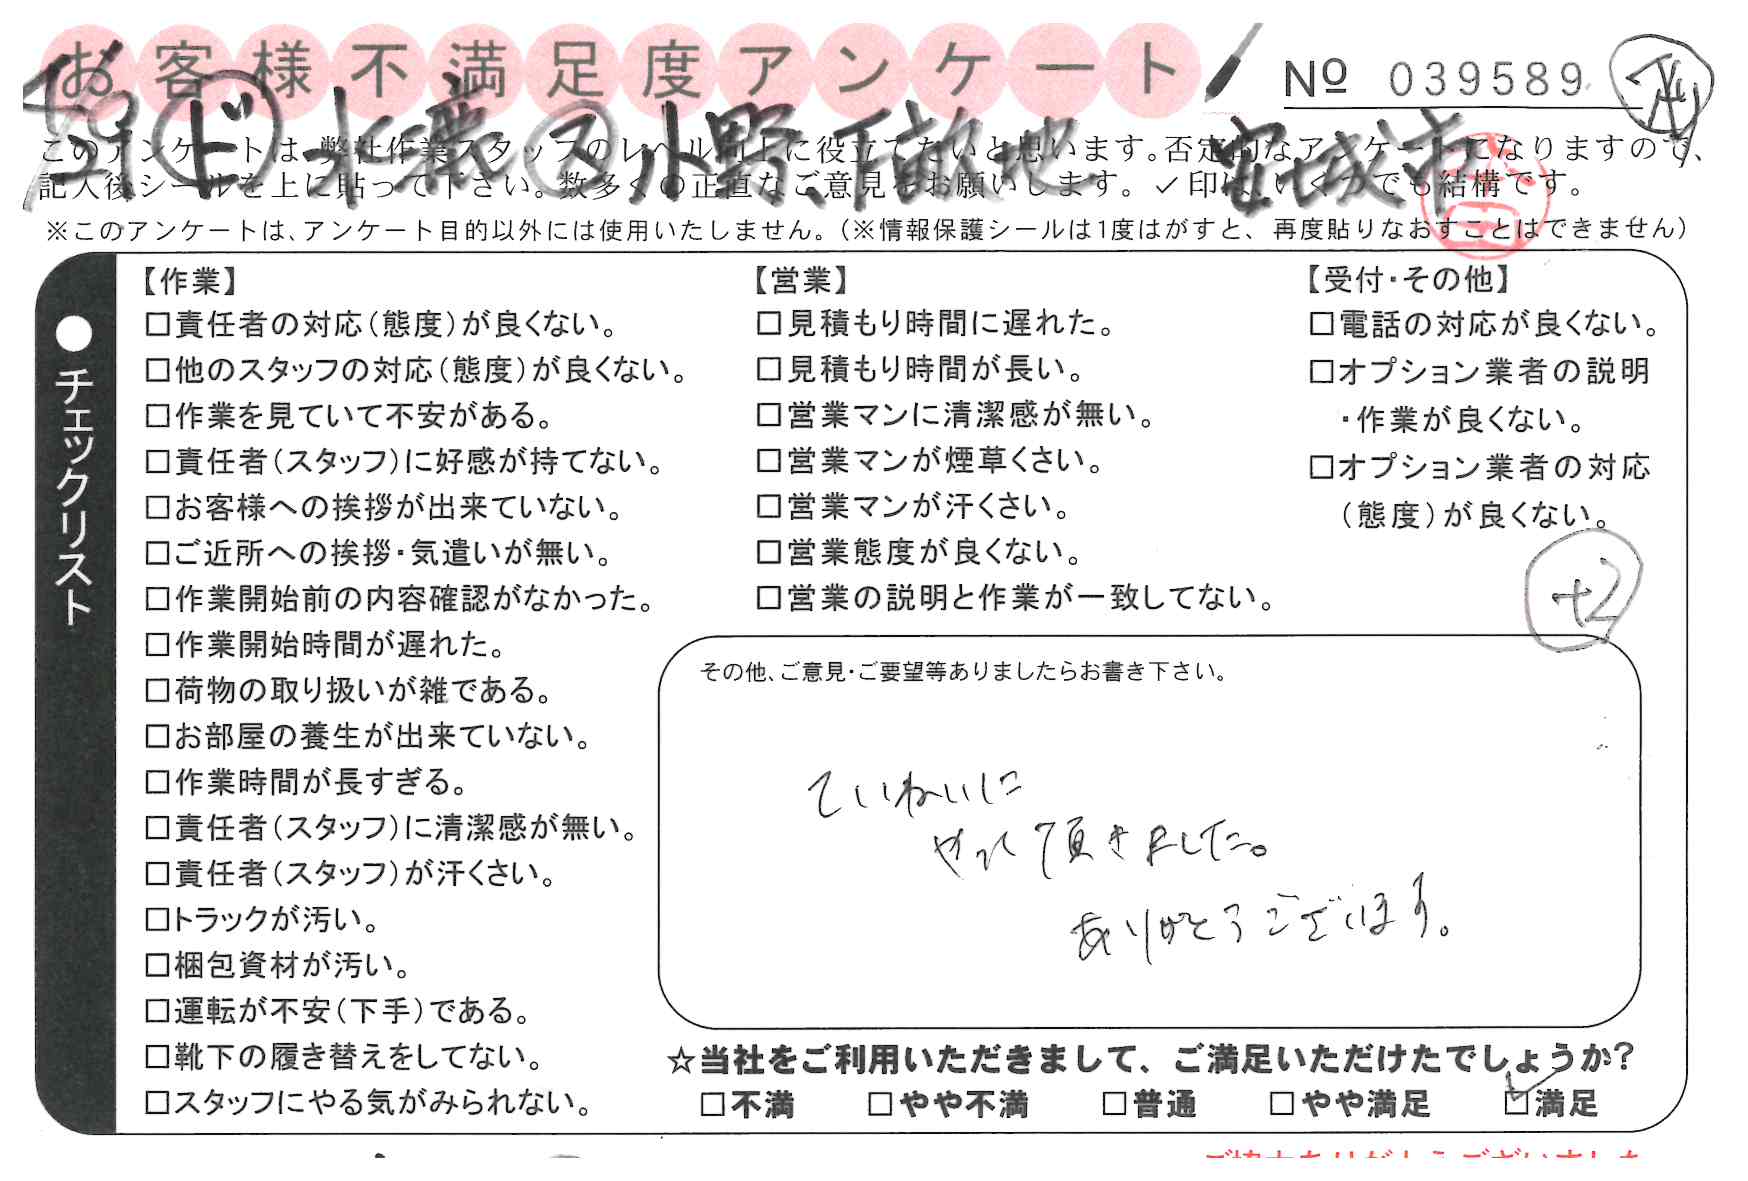 お客様不満足度アンケート
No 039589
このアンケートは、弊社作業スタッフのレベル向上に役立てたいと思います。否定的なアンケートになりますので、
記入後シールを上に貼って下さい。数多くの正直なご意見をお願いします。✓印は、いくつでも結構です。
※このアンケートは、アンケート目的以外には使用いたしません。(※情報保護シールは1度はがすと、再度貼りなおすことはできません)
●チェックリスト
【作業】
□責任者の対応(態度)が良くない。
□他のスタッフの対応(態度)が良くない。
□作業を見ていて不安がある。
□責任者(スタッフ)に好感が持てない。
□お客様への挨拶が出来ていない。
□ご近所への挨拶・気遣いが無い。
□作業開始前の内容確認がなかった。
□作業開始時間が遅れた。
□荷物の取り扱いが雑である。
□お部屋の養生が出来ていない。
□作業時間が長すぎる。
□責任者(スタッフ)に清潔感が無い。
□責任者(スタッフ)が汗くさい。
□トラックが汚い。
□梱包資材が汚い。
□運転が不安(下手)である。
□靴下の履き替えをしてない。
□スタッフにやる気がみられない。
【営業】
□見積もり時間に遅れた。
□見積もり時間が長い。
□営業マンに清潔感が無い。
□営業マンが煙草くさい。
□営業マンが汗くさい。
□営業態度が良くない。
□営業の説明と作業が一致してない。
【受付・その他】
□電話の対応が良くない。
□オプション業者の説明
・作業が良くない。
□オプション業者の対応
(態度)が良くない。
+2
その他、ご意見・ご要望等ありましたらお書き下さい。
ていねいに
やって頂きました。
ありがとうございます。
☆当社をご利用いただきまして、ご満足いただけたでしょうか?
□不満 □やや不満 □普通 □やや満足 ☑満足
ご協力ありがとうございました